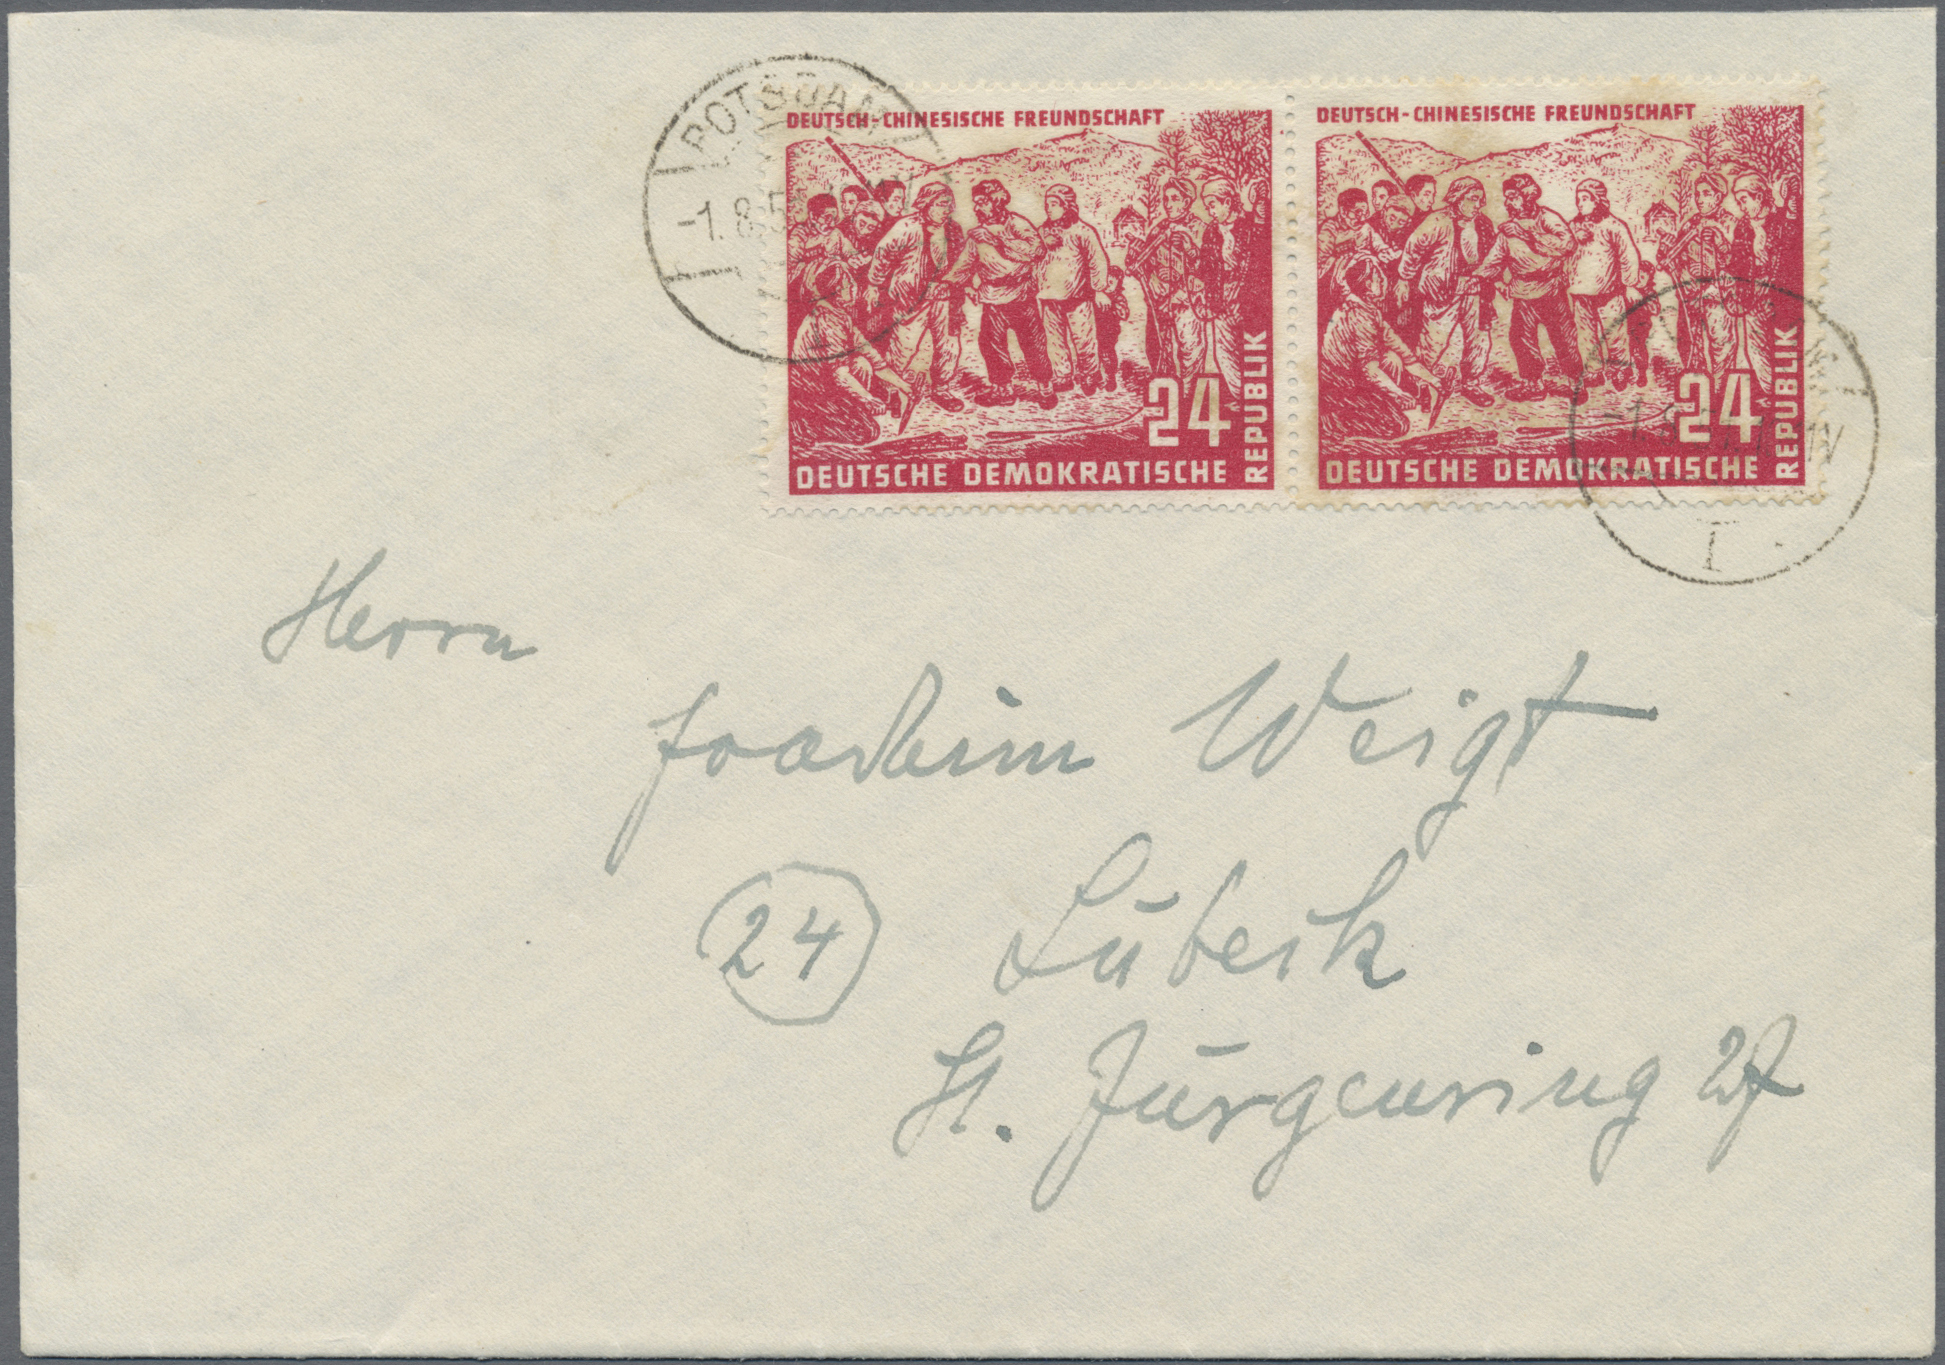 POTSDAM
-1.8.5
DEUTSCH-CHINESISCHE FREUNDSCHAFT
24
DEUTSCHE DEMOKRATISCHE
REPUBLIK
DEUTSCH-CHINESISCHE FREUNDSCHAFT
24
DEUTSCHE DEMOKRATISCHE
REPUBLIK
I
Herrn
Joachim Weigt
24 Lübeck
St. Jürgenring